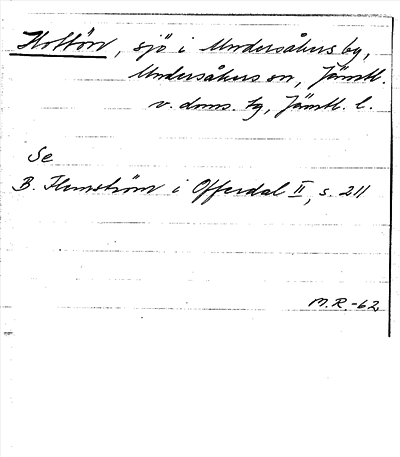 Hottön, sjö i Undersåkers by,
Undersåkers sn, Jämtl.
v. doms. tg, Jämtl. l.
Se
B. Flemström i Offerdal II, s. 211
M.R.-62